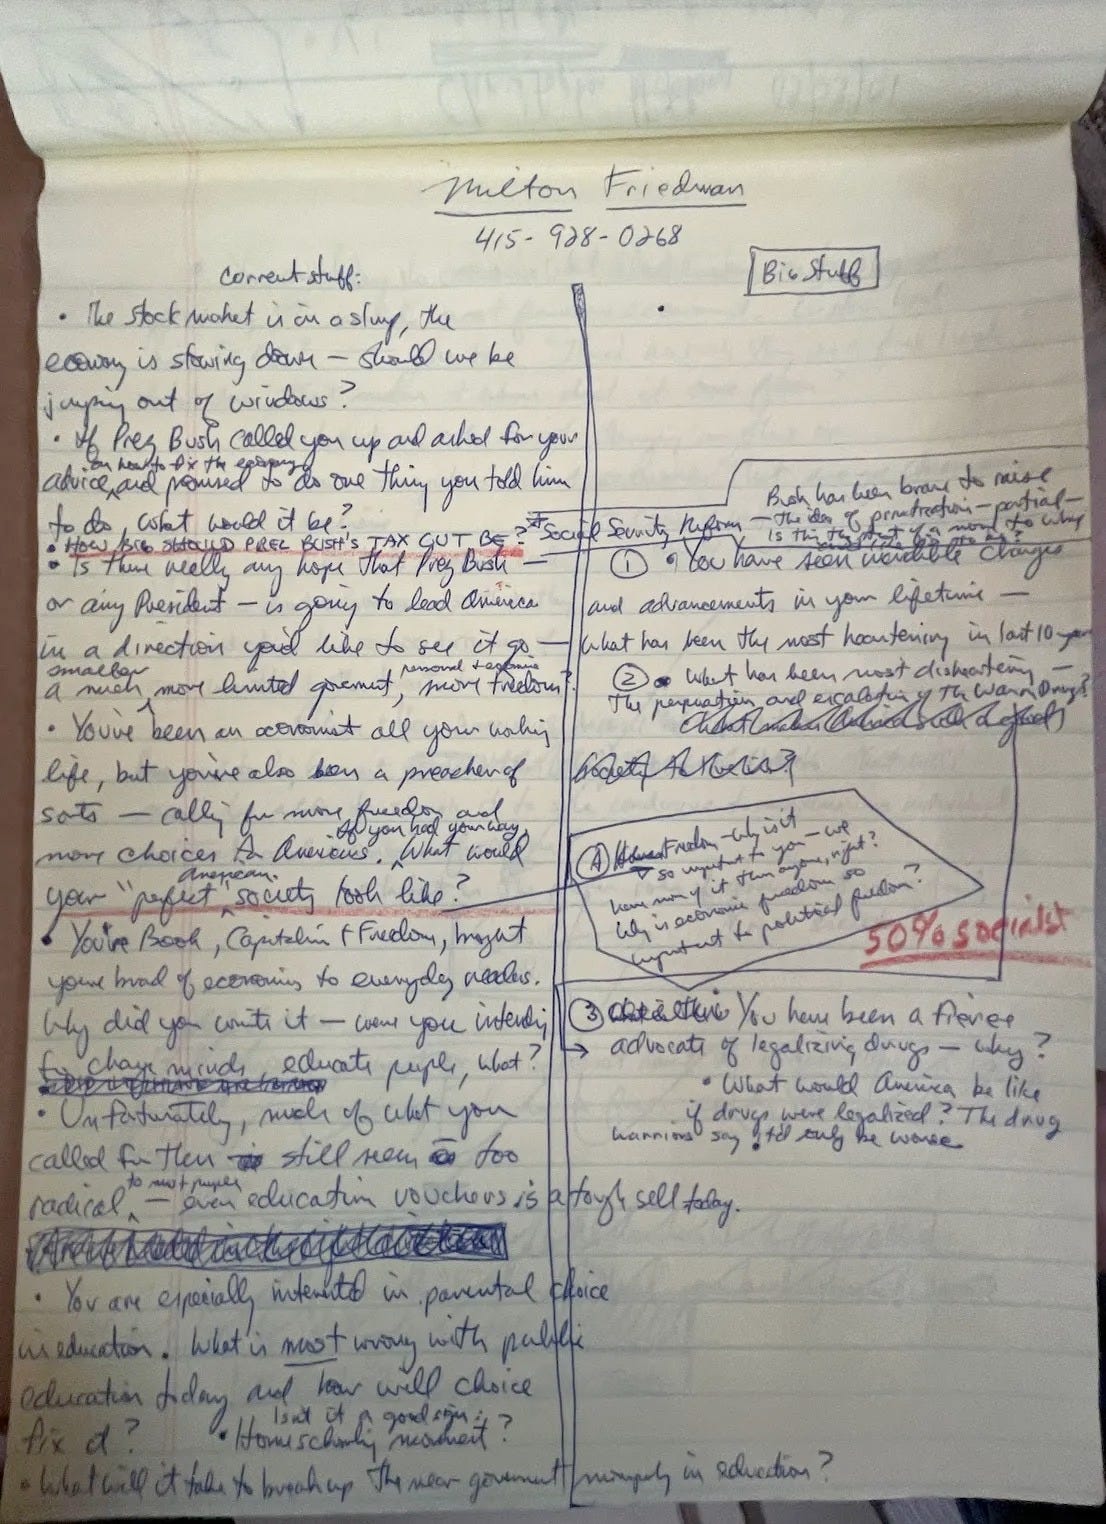 Milton Friedman
415-928-0268
Current stuff:
• The stock market is in a slump, the
economy is slowing down — should we be
jumping out of windows?
• If Prez Bush called you up and asked for your
on how to fix the economy
advice, and promised to do one thing you told him
to do, what would it be?
• HOW BIG SHOULD PREZ BUSH'S TAX CUT BE?
• Is there really any hope that Prez Bush —
or any President — is going to lead America
in a direction you'd like to see it go —
smaller personal + economic
a much, more limited government, more freedom?
• You've been an economist all your working
life, but you've also been a preacher of
sorts — calling for more freedom and
If you had your way,
more choices for Americans. What would
American
your "perfect" society look like?
• You're Book, Capitalism & Freedom, brought
your brand of economics to everyday readers.
Why did you write it — were you intending
to change minds, educate people, what?
• Unfortunately, much of what you
called for then still seem too
to most people
radical — even education vouchers is a tough sell today.
• You are especially interested in parental choice
in education. What is most wrong with public
education today and how will choice
fix it?
Isn't it a good sign:
• Homeschooling movement?
• What will it take to break up the near government monopoly in education?
Big Stuff
•
Bush has been brave to raise
* Social Security Reform — The idea of privatization — partial —
Is this the
① • You have seen incredible changes
and advancements in your lifetime —
what has been the most heartening in last 10 years
② • What has been most disheartening —
The perpetuation and escalation of the War on Drugs?
④ freedom — why is it
so important to you — we
have more of it than anyone, right?
Why is economic freedom so
important to political freedom?
50% socialist
③ You have been a fierce
→ advocate of legalizing drugs — why?
• What would America be like
if drugs were legalized? The drug
warriors say it'd only be worse